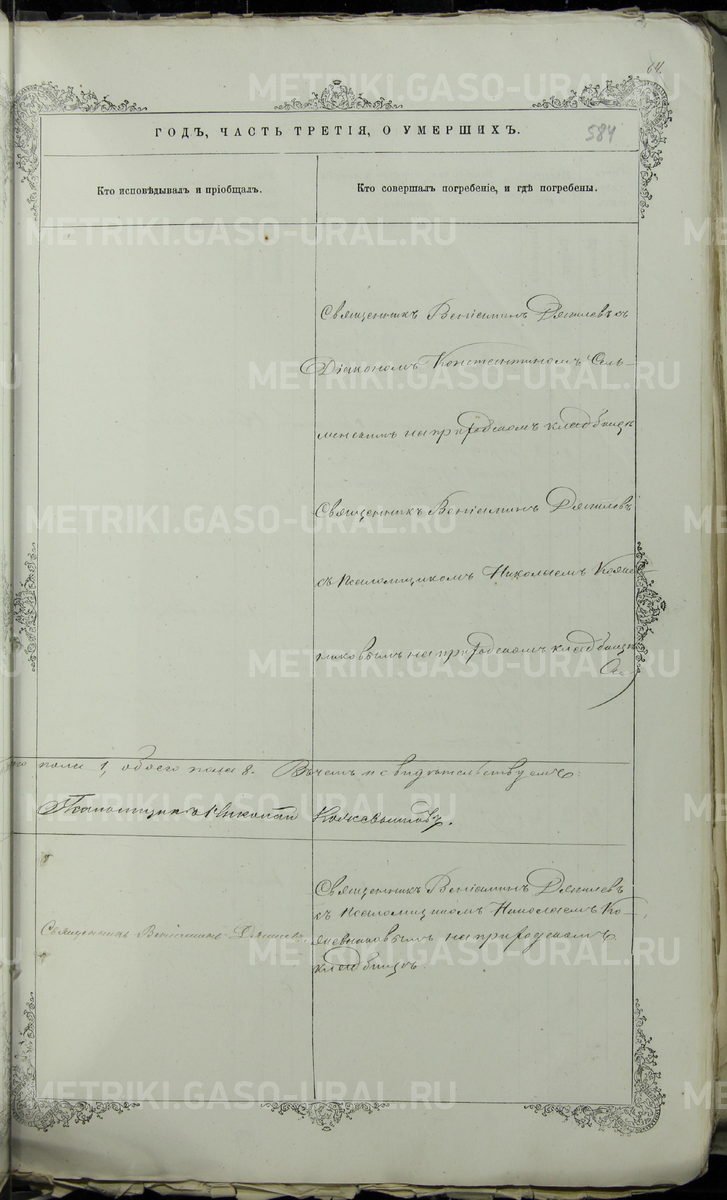 64.
ГОДЪ, ЧАСТЬ ТРЕТІЯ, О УМЕРШИХЪ.
584
Кто исповѣдывалъ и пріобщалъ.
Кто совершалъ погребеніе, и гдѣ погребены.
Священникъ Веніаминъ Дягилевъ съ
Діакономъ Константиномъ Сель-
менскимъ на приходскомъ кладбищѣ
Священникъ Веніаминъ Дягилевъ
съ Псаломщикомъ Николаемъ Кожев-
никовымъ на приходскомъ кладбищѣ
пола 1, обоего пола 8. Въ чемъ и свидѣтельствуемъ:
Псаломщикъ Николай Кожевниковъ.
Священникъ Веніаминъ Дягилевъ.
Священникъ Веніаминъ Дягилевъ
съ Псаломщикомъ Николаемъ Ко-
жевниковымъ на приходскомъ
кладбищѣ.
METRIKI.GASO-URAL.RU